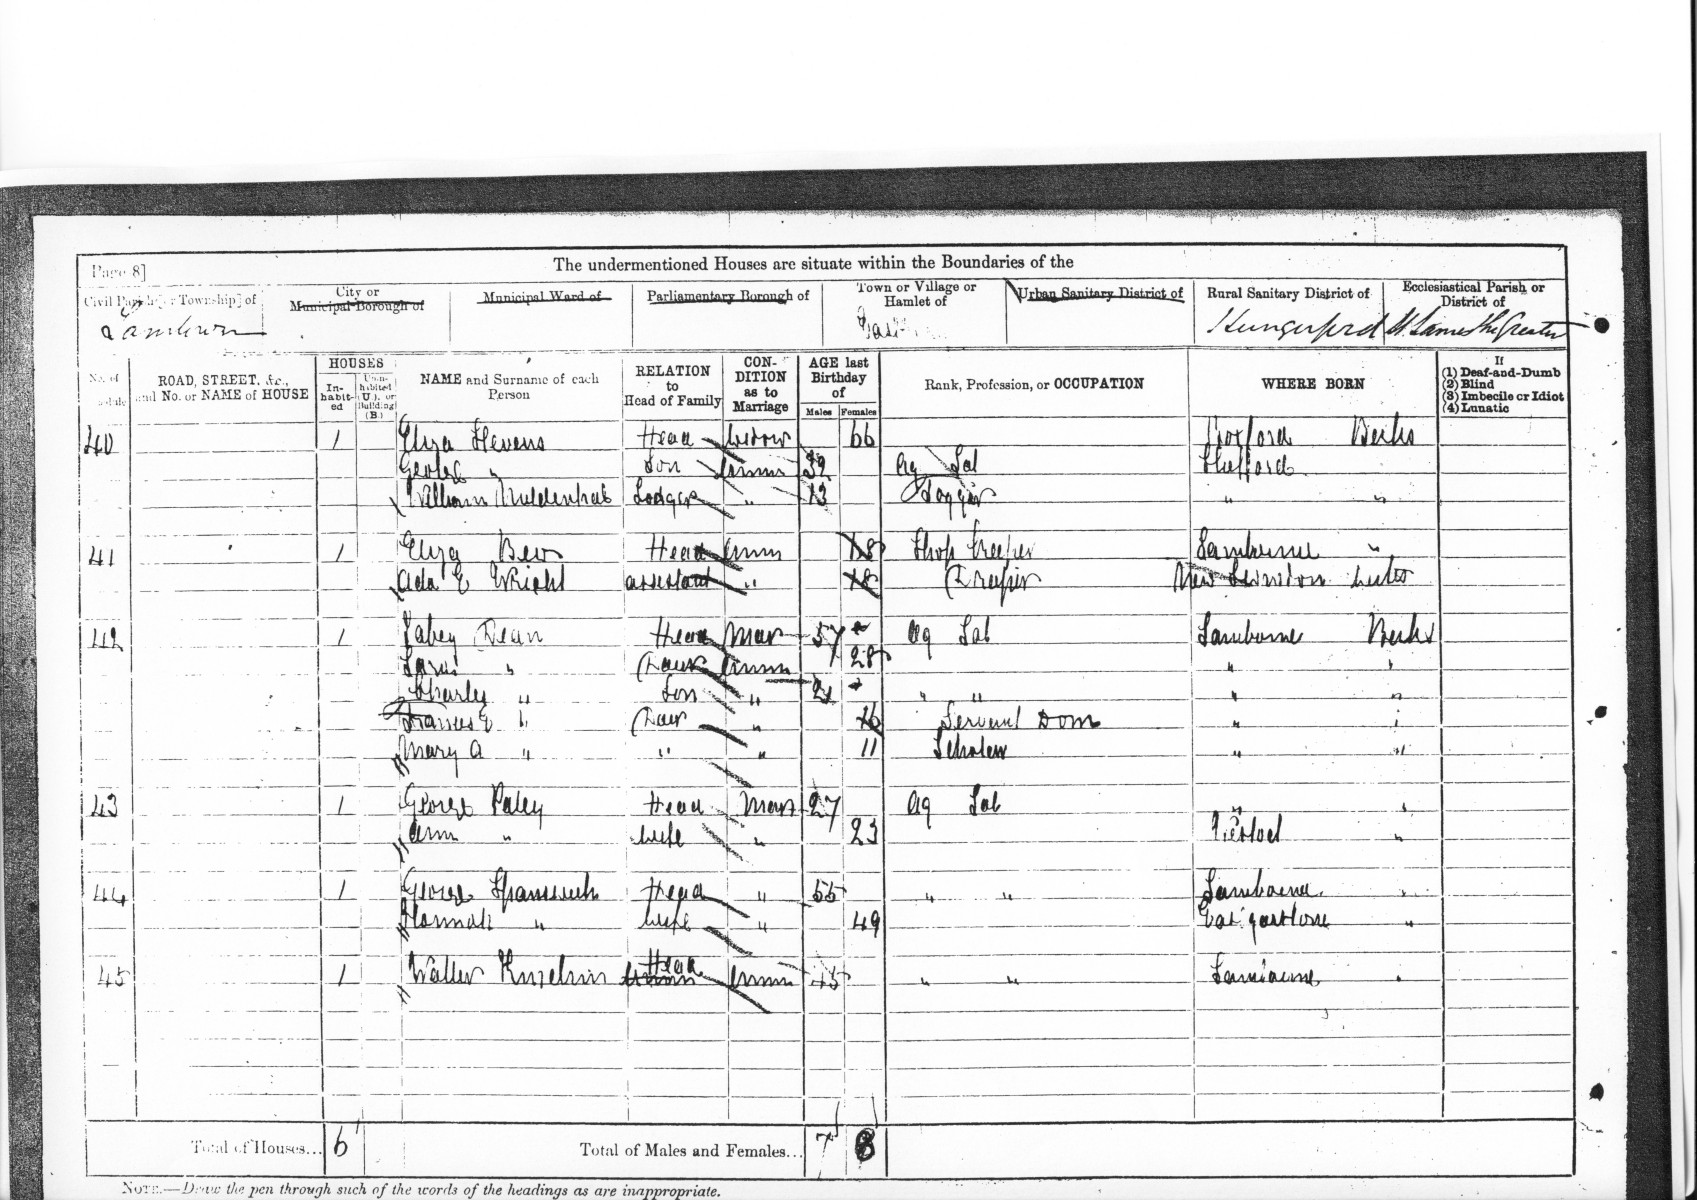 Page 8]
The undermentioned Houses are situate within the Boundaries of the
Civil Parish [or Township] of
City or Municipal Borough of
Municipal Ward of
Parliamentary Borough of
Town or Village or Hamlet of
Urban Sanitary District of
Rural Sanitary District of
Ecclesiastical Parish or District of
Lambourn Hungerford St James the Greater
No. of Schedule
ROAD, STREET, &c., and No. or NAME of HOUSE
HOUSES
In-habit-ed
Unin-habited (U.), or Building (B.)
NAME and Surname of each Person
RELATION to Head of Family
CON-DITION as to Marriage
AGE last Birthday of
Males Females
Rank, Profession, or OCCUPATION
WHERE BORN
If
(1) Deaf-and-Dumb
(2) Blind
(3) Imbecile or Idiot
(4) Lunatic
40 1 Eliza Stevens Head Widow 66 Boxford Berks
George " Son Unm 32 Ag Lab Shefford
William Lodger " 13 " "
41 1 Eliza Bew Head Unm Shop Keeper Lambourne "
Ada E Wright assistant " 18 (Draper New Swindon Wilts
42 1 Dean Head Mar 57 Ag Lab Lambourne Berks
" Daur Unm 28 " "
Charles " Son " 21 " " " "
Frances E " Daur " 16 Servant Dom " "
Mary A " " " 11 Scholar " "
43 1 George Paley Head Mar 27 Ag Lab " "
Ann " Wife " 23 "
44 1 George Spanswick Head " 55 " " Lambourne "
Hannah " Wife " 49 East Garstone "
45 1 Walter Head Unm 45 " " Lambourne "
Total of Houses... 6 Total of Males and Females... 7 8
NOTE.—Draw the pen through such of the words of the headings as are inappropriate.